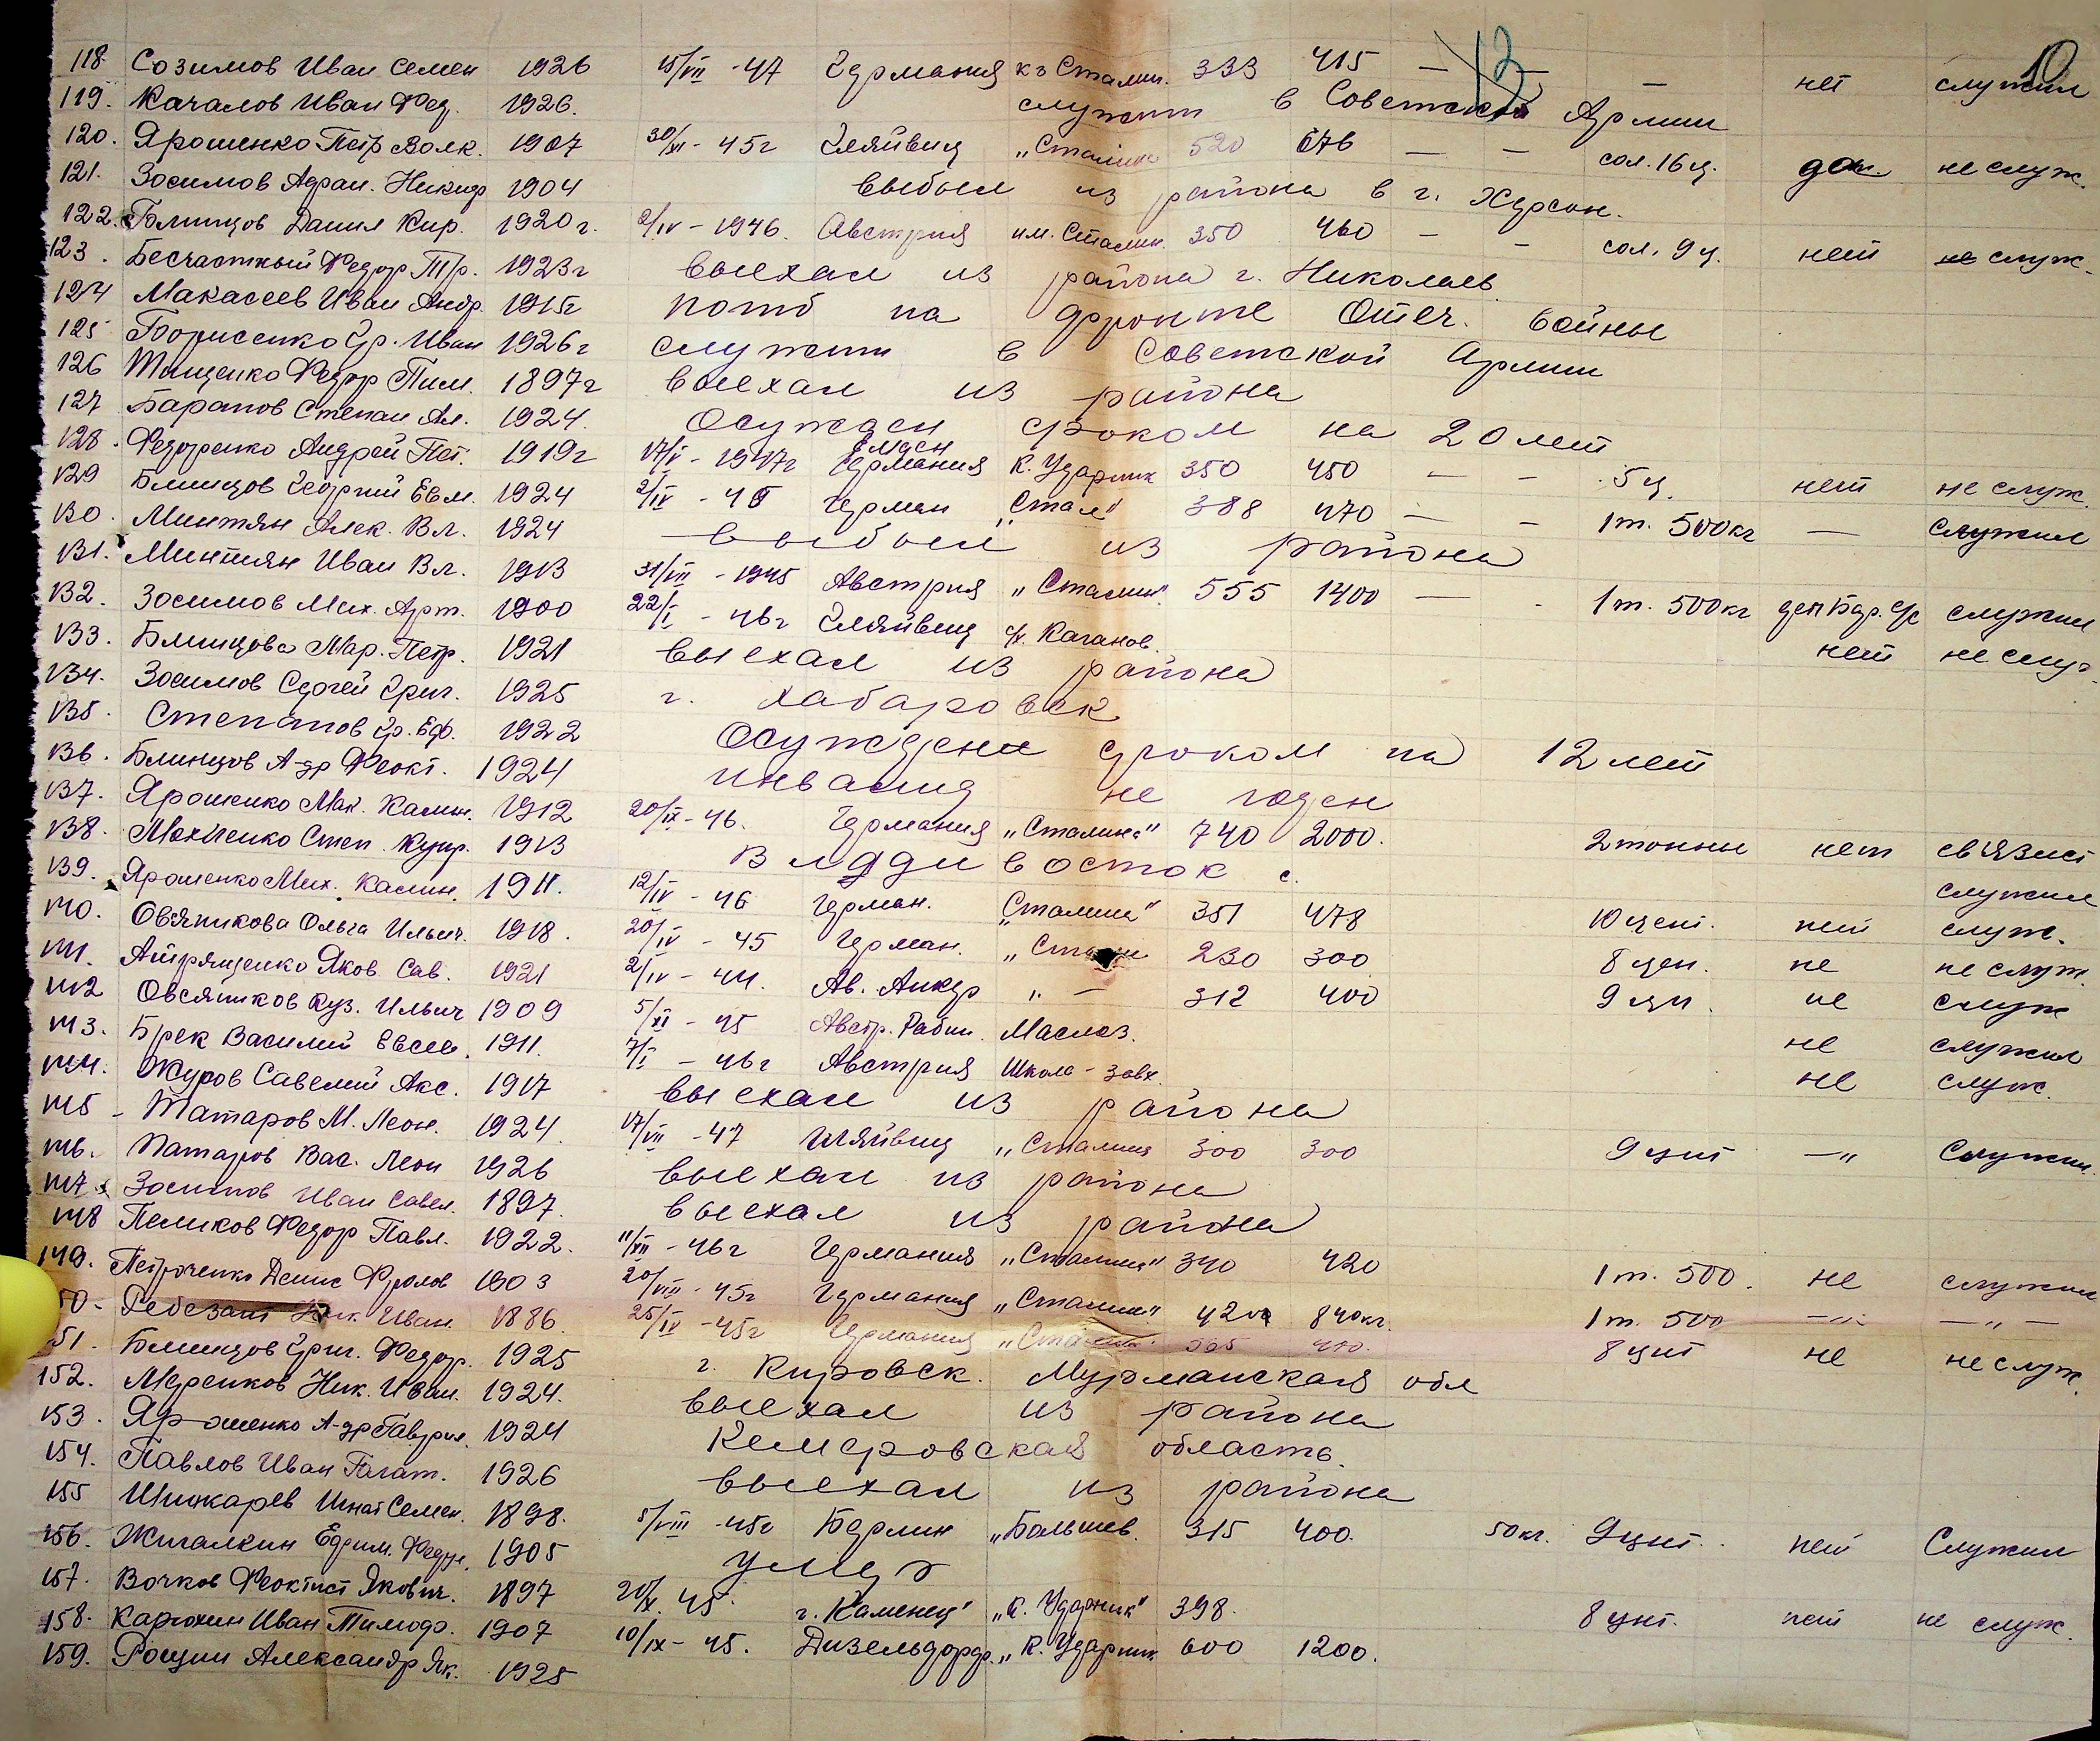 13 10
118. Созимов Иван Семен 1926 15/VII - 47 Германия к-з Сталин. 333 415 — — — нет служил
119. Качалов Иван Фед. 1926. служит в Советской Армии
120. Ярошенко Петр Волк. 1907 30/XI - 45г Гляйвиц "Сталина 520 676 — — сол. 16 ц. не служ.
121. Зосимов Адриан. Никиф 1904 выбыл из района в г. Херсон.
122. Блинцов Данил Кир. 1920 г. 2/IV - 1946. Австрия им. Сталин. 350 460 — — сол. 9 ц. нет не служ.
123. Бесчастный Федор Тр. 1923г выехал из района г. Николаев
124 Макасеев Иван Андр. 1915г погиб на фронте Отеч. войны
125 Борисенко Гр. Иван 1926г служит в Советской Армии
126 Тищенко Федор Пим. 1897г выехал из района
127 Баранов Степан Ал. 1924. Осужден сроком на 20 лет
128. Федоренко Андрей Пет. 1919г 17/V - 1947г Германия Емден К. Ударник 350 450 — — 5 ц. нет не служ.
129 Блинцов Георгий Евм. 1924 2/IV - 45 Герман "Стал" 388 470 — — 1 т. 500 кг — служил
130. Минтян Алек. Вл. 1924 выбыл из района
131. Минтян Иван Вл. 1913 31/VII - 1945 Австрия "Сталин". 555 1400 — - 1 т. 500 кг служил
132. Зосимов Мих. Арт. 1900 22/I - 46г Гляйвиц с/х. Каганов. нет не служ.
133. Блинцова Мар. Петр. 1921 выехал из района
134. Зосимов Сергей Григ. 1925 г. Хабаровск
135. Степанов Гр. Еф. 1922 Осужден сроком на 12 лет
136. Блинцов А-др Феокт. 1924 инвалид не годен
137. Ярошенко Мак. Калин. 1912 20/IX - 46. Германия "Сталина" 740 2000. 2 тонны нет связист
138. Махненко Степ. Купр. 1913 Владивосток с. служил
139. Ярошенко Мих. Калин. 1911. 12/IV - 46 Герман. "Сталина" 351 478 10 цент. нет служ.
140. Овсяникова Ольга Ильин. 1918. 20/IV - 45 Герман. "Стали 230 300 8 цен. не не служ.
141. Андрющенко Яков Сав. 1921 2/IV - 44. Ав. " — 312 400 9 цн. не служ
142 Овсяников Куз. Ильич 1909 5/XI - 45 Австр. Маслоз. не служил
143. Брек Василий Евсев. 1911. 7/I - 46г Австрия Школа - завх. не служ.
144. Журов Савелий Акс. 1917 выехал из района
145 - Татаров М. Леон. 1924. 17/VII - 47 Гляйвиц "Сталина 300 300 9 цнт —" Служил
146. Татаров Вас. Леон 1926 выехал из района
147. Зосимов Иван Савел. 1897. выехал из района
148 Пеликов Федор Павл. 1922. 11/XII - 46г Германия "Сталина" 340 420 1 т. 500. не служил
149. Петроченко Денис Фролов 1903 20/VIII - 45г Германия "Сталин" 420 840 кг. 1 т. 500 —"— —"—
50 - Ребезант Иван. 1886. 25/IV - 45г Германия "Сталин. 8 цнт не не служ.
151. Блинцов Григ. Федор. 1925 г. Кировск. Мурманская обл
152. Меренков Ник. Иван. 1924. выехал из района
153. Ярошенко А-др Гаврил. 1924 Кемеровская область.
154. Павлов Иван Игнат. 1926 выехал из района
155 Шинкарев Игнат Семен. 1898. 5/VIII - 45г Берлин "Большев. 315 400. 50 кг. 9 цнт. нет Служил
156. Жигалкин Ефим. Федр. 1905 умер
157. Вочков Феоктист Якович. 1897 20/X. 45. г. Каменец "К. Ударник" 398. 8 цнт. нет не служ.
158. Карюхин Иван Тимоф. 1907 10/IX - 45. Дизельдорф. "К. Ударник 600 1200.
159. Рощин Александр Як. 1925